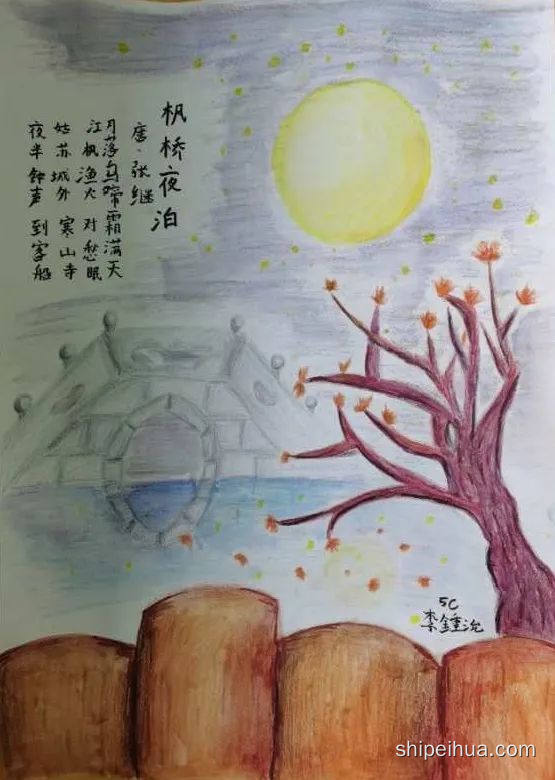 枫桥夜泊
唐·张继
月落乌啼霜满天
江枫渔火对愁眠
姑苏城外寒山寺
夜半钟声到客船
5C
shipeihua.com